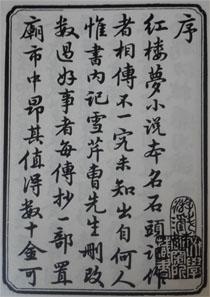 序
紅樓夢小說本名石頭記作
者相傳不一究未知出自何人
惟書內記雪芹曹先生刪改
數過好事者每傳抄一部置
廟市中昂其值得數十金可